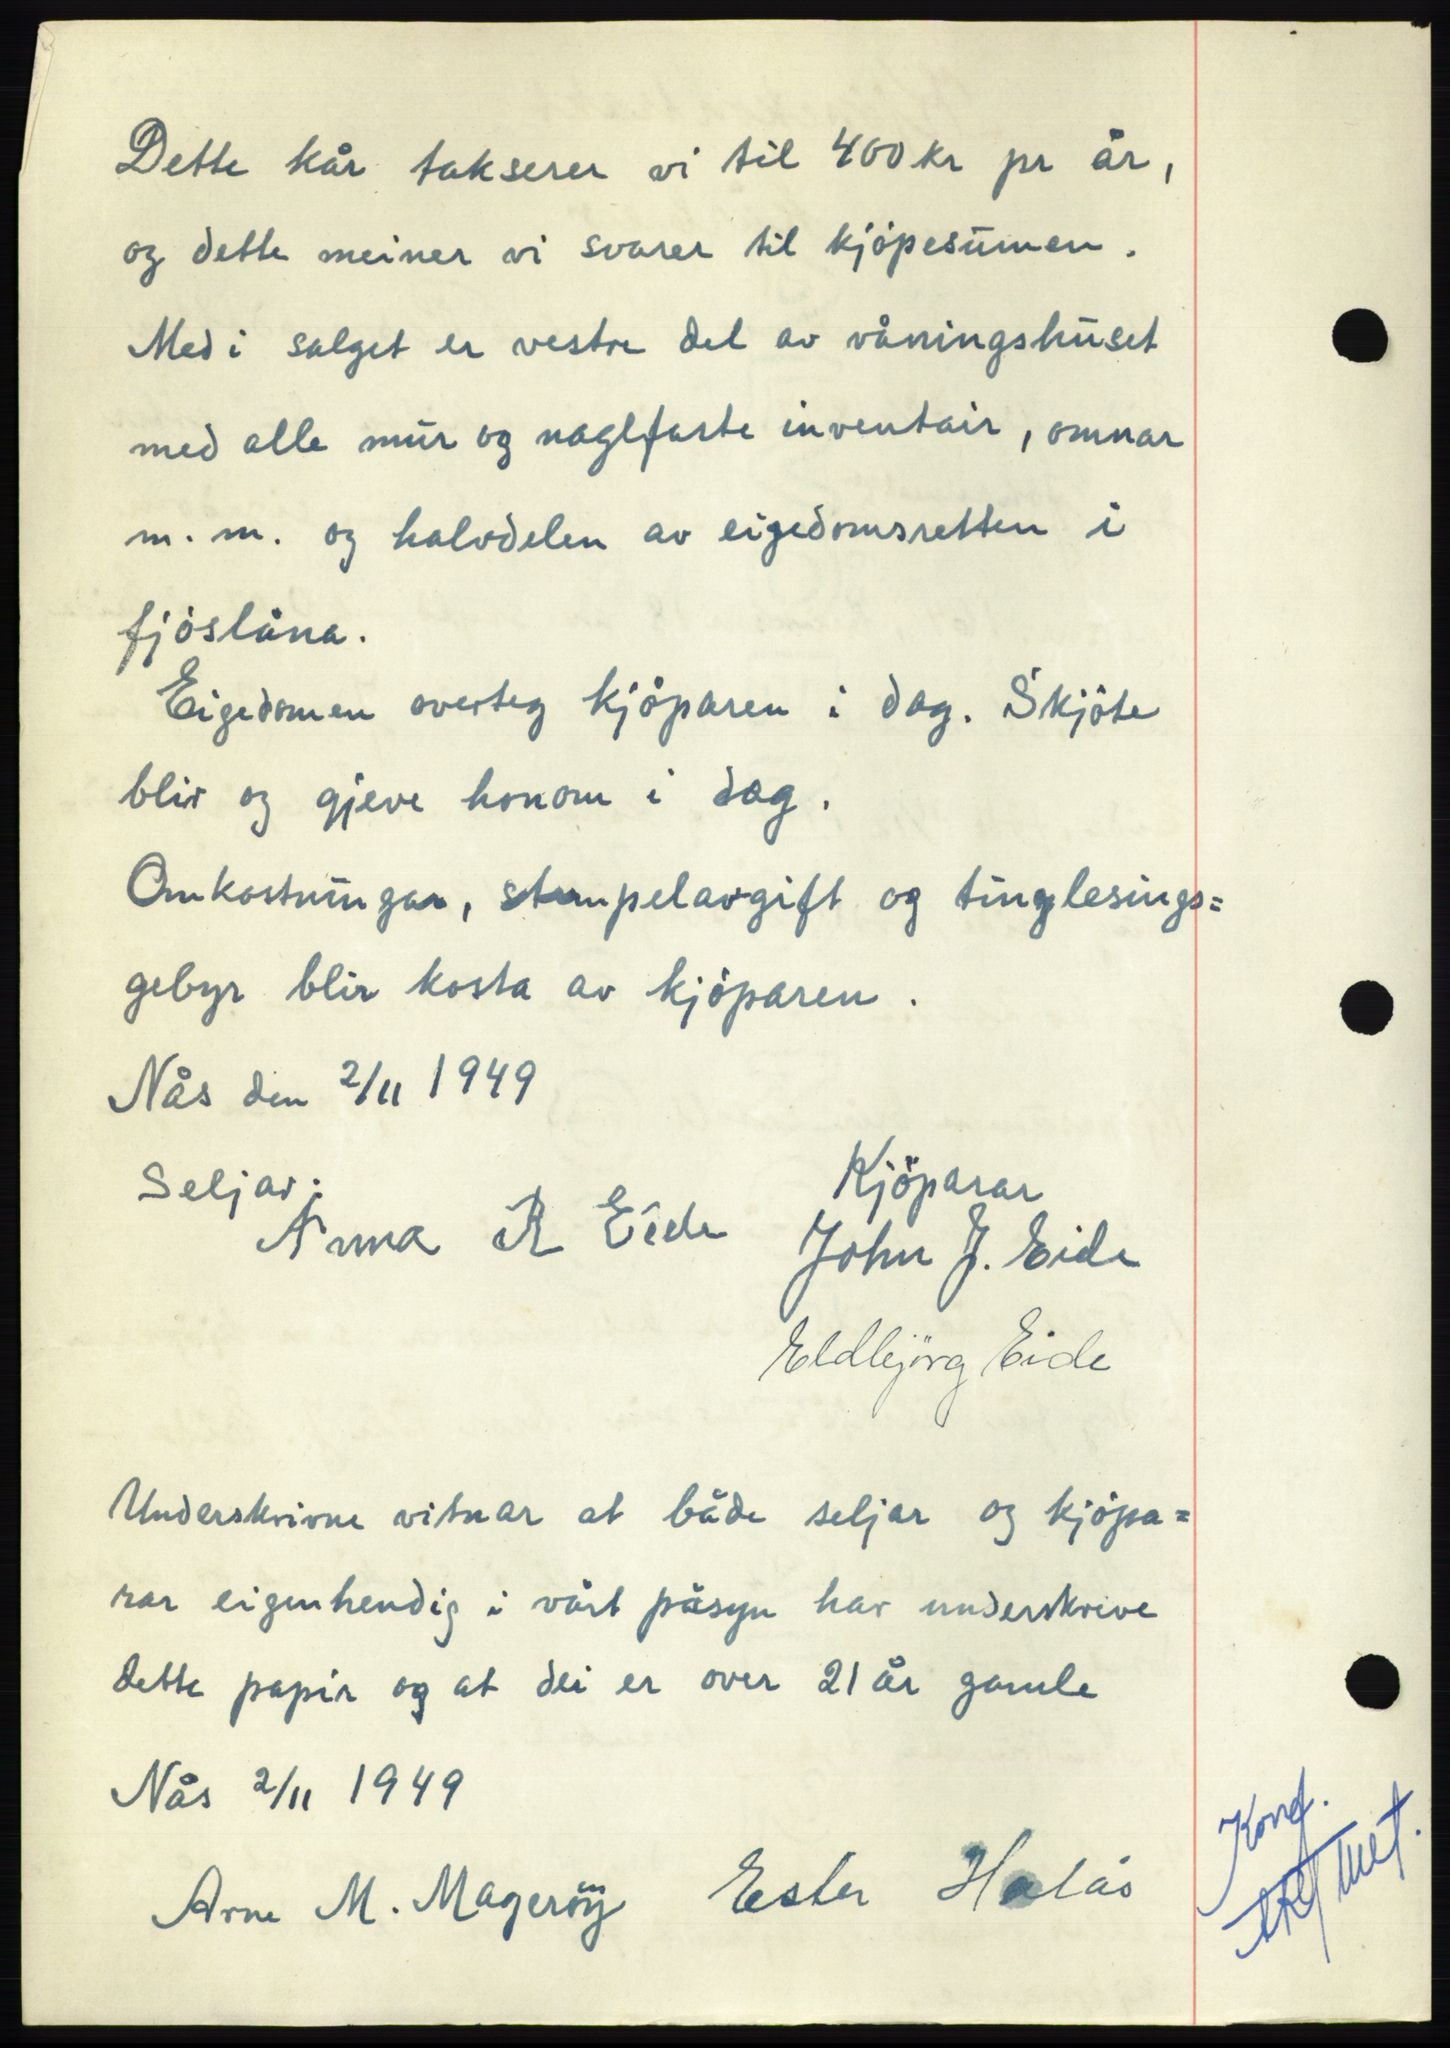 Dette kår takserer vi til 400 kr pr år,
og dette meiner vi svarer til kjöpesumen.
Med i salget er vestre del av våningshuset
med alle mur og naglfaste inventair, omnar
m. m. og halvdelen av eigedomsretten i
fjöslåna.
Eigedomen overteg kjöparen i dag. Skjöte
blir og gjeve honom i dag.
Omkostningar, stempelavgift og tinglesings=
gebyr blir kosta av kjöparen.
Nås den 2/11 1949
Seljar: Kjöparar
Anna R Eide John J. Eide
Eldbjörg Eide
Underskrivne vitnar at både seljar og kjöpa=
rar eigenhendig i vårt påsyn har underskrive
dette papir og at dei er over 21 år gamle
Nås 2/11 1949
Arne M. Mageröy Ester Halås
Konf.